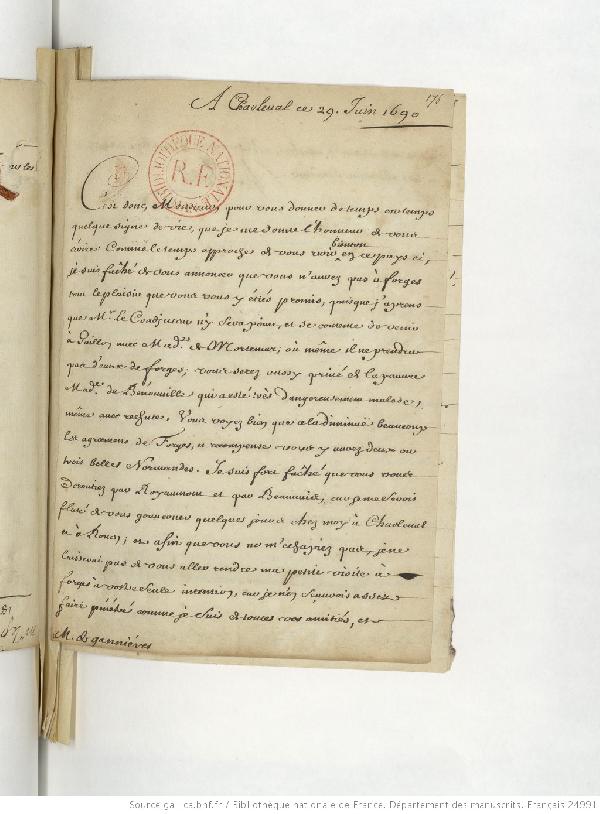 176
A Charleual ce 29. Juin 1690
BIBLIOTHEQUE NATIONALE
R.F.
C'est donc, Monsieur, pour vous donner de temps en temps
quelque signe de vie, que je me donne l'honneur de vous
écrire. Comme le temps approche de vous voir bientost en ce pays ci,
je suis faché de vous annoncer que vous n'aurez pas à forges
tout le plaisir que vous vous y étiés promis, puisque j'aprens
que Mr. le Coadjuteur n'y sera point, et se contente de venir
à Gaillon avec Made. de Mortemar, où même il ne prendra
pas d'eaux de forges; vous serez aussy privé de la pauvre
Made. de Bénouuille qui a esté très dangereusement malade,
même avec rechute. Vous voyez bien que cela diminuë beaucoup
les agremens de Forges, en recompense vous y aurez deux ou
trois belles Normandes. Je suis fort faché que vous vous
détourniez par Royaumont et par Beauuais, car je me serois
flaté de vous gouuerner quelques jours chez moy à Charleual
et à Rouen; et afin que vous ne m'échapiez pas, je ne
laisserai pas de vous aller rendre ma petite visite à
forges à vostre seule intention, car je n'en sçaurois assez
faire pénétré comme je suis de toutes vos amitiés, et
M. de gannières
Source gallica.bnf.fr / Bibliothèque nationale de France. Département des manuscrits. Français 24991